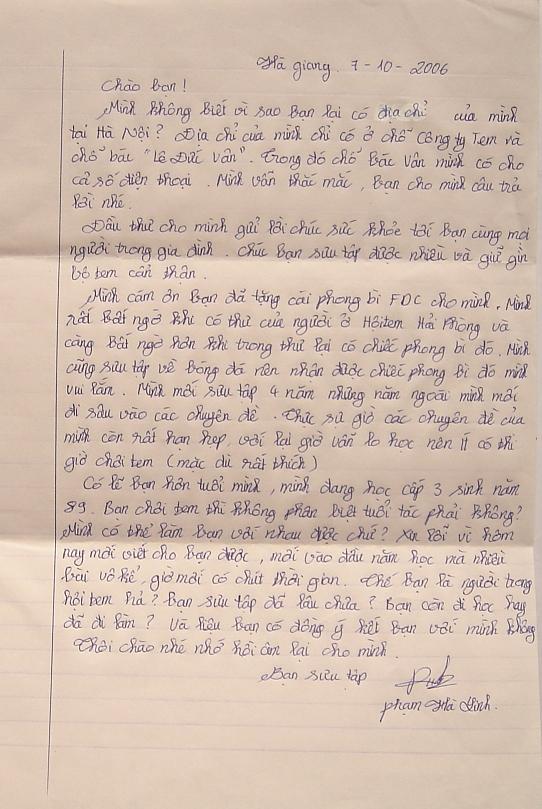 Hà giang. 7 - 10 - 2006
Chào bạn!
Mình không biết vì sao Bạn lại có địa chỉ của mình
tại Hà Nội? Địa chỉ của mình chỉ có ở chỗ công ty Tem và
chỗ bác "Lê Đức Vân". Trong đó chỗ Bác Vân mình có cho
cả số điện thoại. Mình vẫn thắc mắc, Bạn cho mình câu trả
lời nhé.
Đầu thư cho mình gửi lời chúc sức khỏe tới Bạn cùng mọi
người trong gia đình. Chúc Bạn sưu tập được nhiều và giữ gìn
bộ tem cẩn thận.
Mình cám ơn Bạn đã tặng cái phong bì FDC cho mình. Mình
rất Bất ngờ khi có thư của người ở Hội tem Hải Phòng và
càng Bất ngờ hơn khi trong thư lại có chiếc phong bì đó. Mình
cũng sưu tập về bóng đá nên nhận được chiếc phong bì đó mình
vui lắm. Mình mới sưu tập 4 năm nhưng năm ngoái mình mới
đi sâu vào các chuyên đề. Thực sự giờ các chuyên đề của
mình còn rất hạn hẹp, với lại giờ vẫn lo học nên ít có thì
giờ chơi tem (mặc dù rất thích)
Có lẽ Bạn hơn tuổi mình, mình đang học cấp 3 sinh năm
89. Bạn chơi tem thì không phân biệt tuổi tác phải không?
Mình có thể làm bạn với nhau được chứ? Xin lỗi vì hôm
nay mới viết cho Bạn được, mới vào đầu năm học mà nhiều
bài vô kể, giờ mới có chút thời gian. Thế Bạn là người trong
hội tem hả? Bạn sưu tập đã lâu chưa? Bạn còn đi học hay
đã đi làm? Và liệu Bạn có đồng ý kết Bạn với mình không
Thôi chào nhé nhớ hồi âm lại cho mình.
Bạn sưu tập
phạm Hà